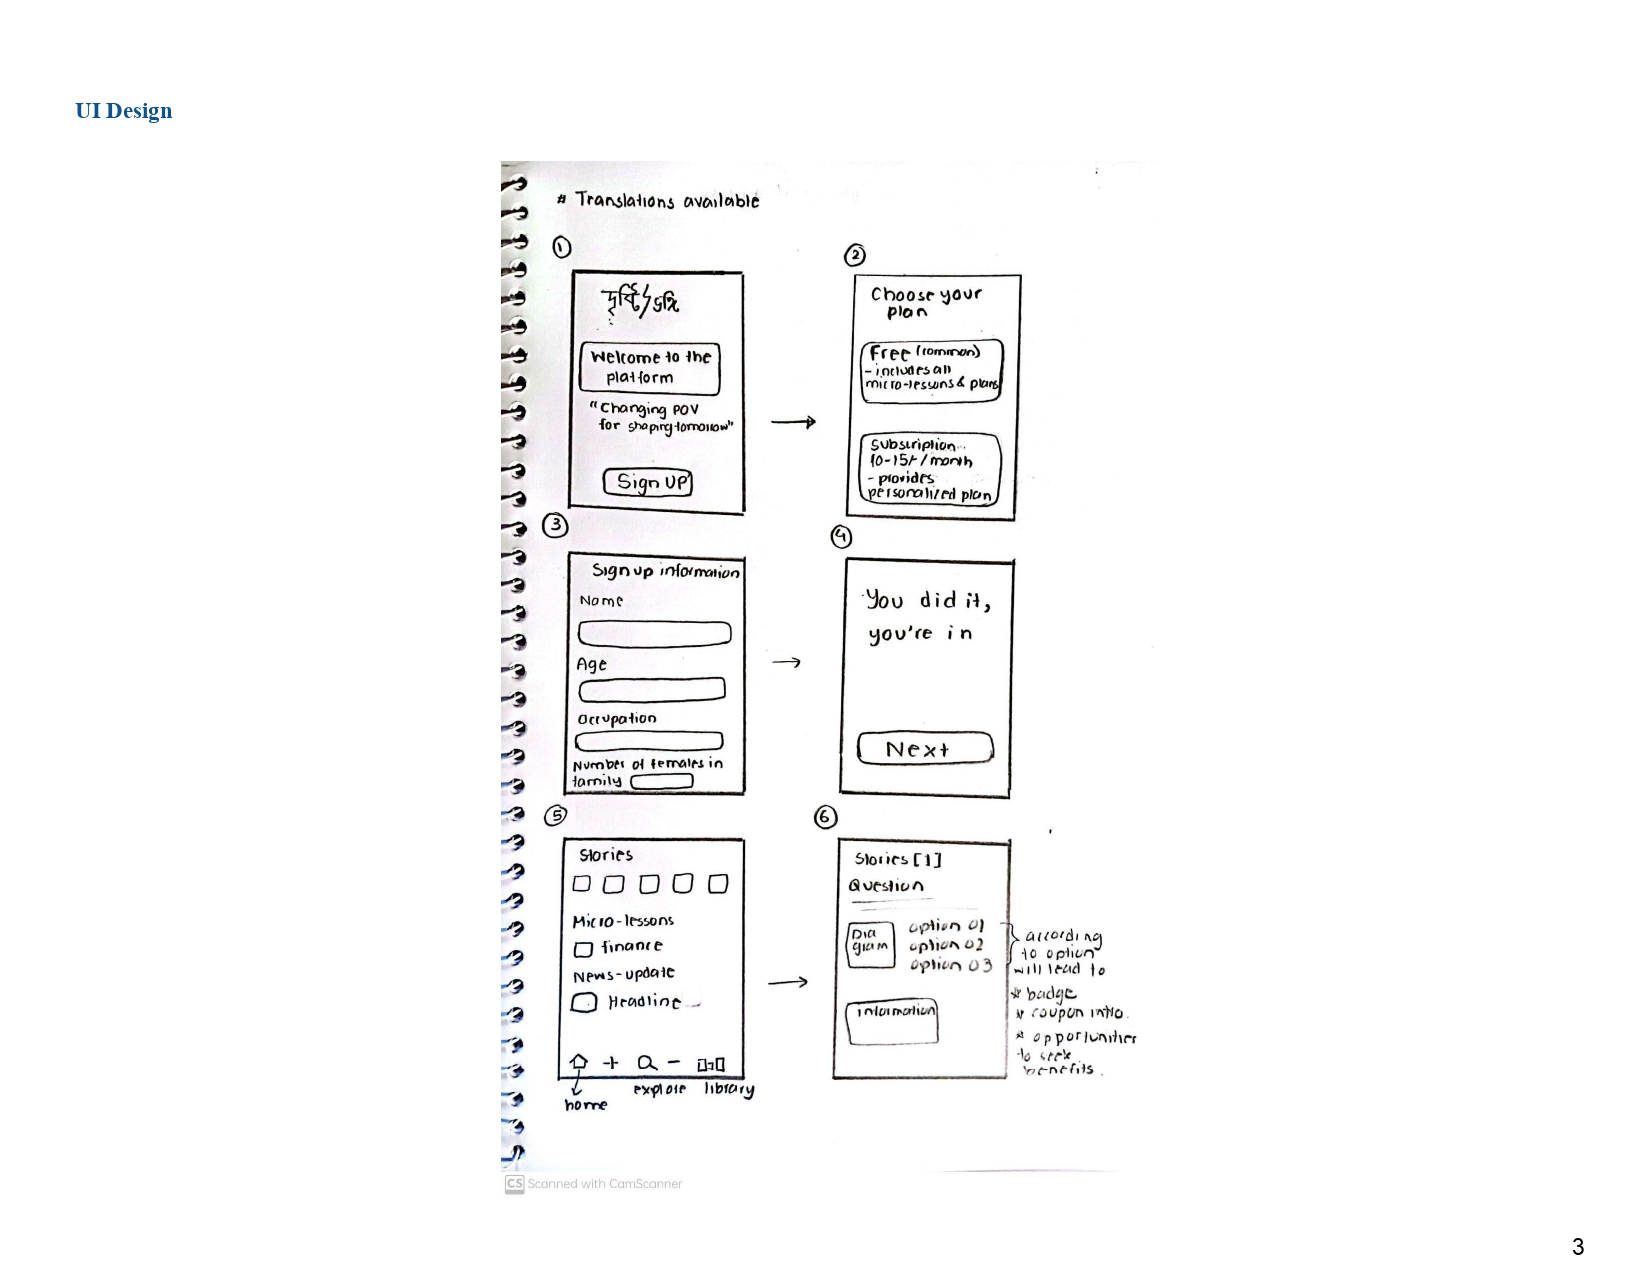 UI Design
# Translations available
1
Welcome to the
platform
"Changing POV
for shaping tomorrow"
Sign UP
2
Choose your
plan
Free (common)
- includes all
micro-lessons & plans
Subscription
10-15/- / month
- provides
personalized plan
3
Sign up information
Name
Age
Occupation
Number of females in
family
4
You did it,
you're in
Next
5
Stories
Micro-lessons
finance
News-update
Headline
home
explore library
6
Stories [1]
Question
Dia
gram
option 01
option 02
option 03
information
according
to option
will lead to
* badge
* coupon
* opportunities
to seek
benefits.
CS Scanned with CamScanner
3